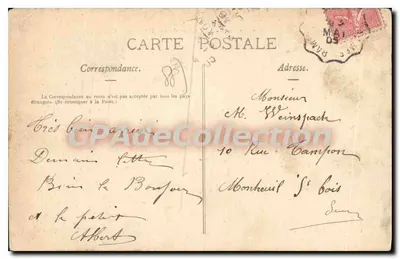 CARTE POSTALE
Correspondance.
La Correspondance au recto n'est pas acceptée par tous les pays
étrangers. (Se renseigner à la Poste.)
Demain
Bien le Bonjour
et le petit
Albert
Adresse.
Monsieur
M. Weinspach
10 Rue Tampon
Montreuil s/ bois
Seine
CPACollection
MAI
05